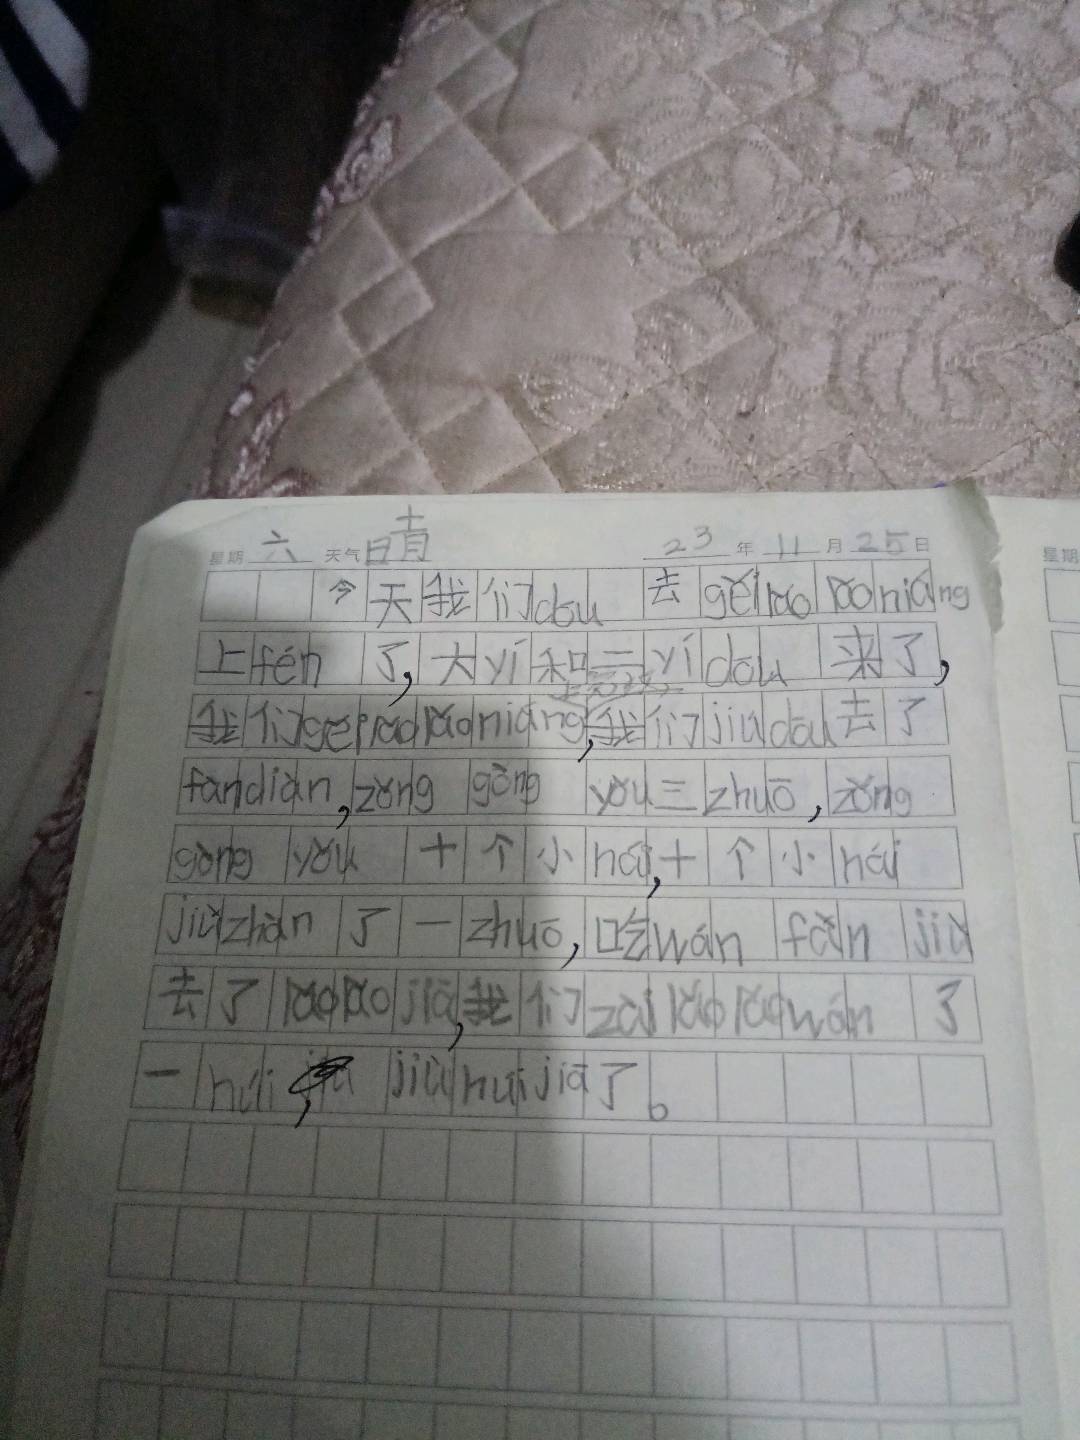 星期 六 天气 晴 23 年 11 月 25 日 星期
今天我们dōu去gěilǎolǎoniáng
上fén了,大yí和三yídōu来了,
我们gěilǎolǎoniáng我们jiùdōu去了
fàndiàn,zǒng gòng yǒu三zhuō,zǒng
gòng yǒu 十个小hái,十个小hái
jiùzhàn了一zhuō,吃wán fàn jiù
去了lǎolǎojiā,我们zàilǎolǎowán了
一huì, jiùhuíjiā了。